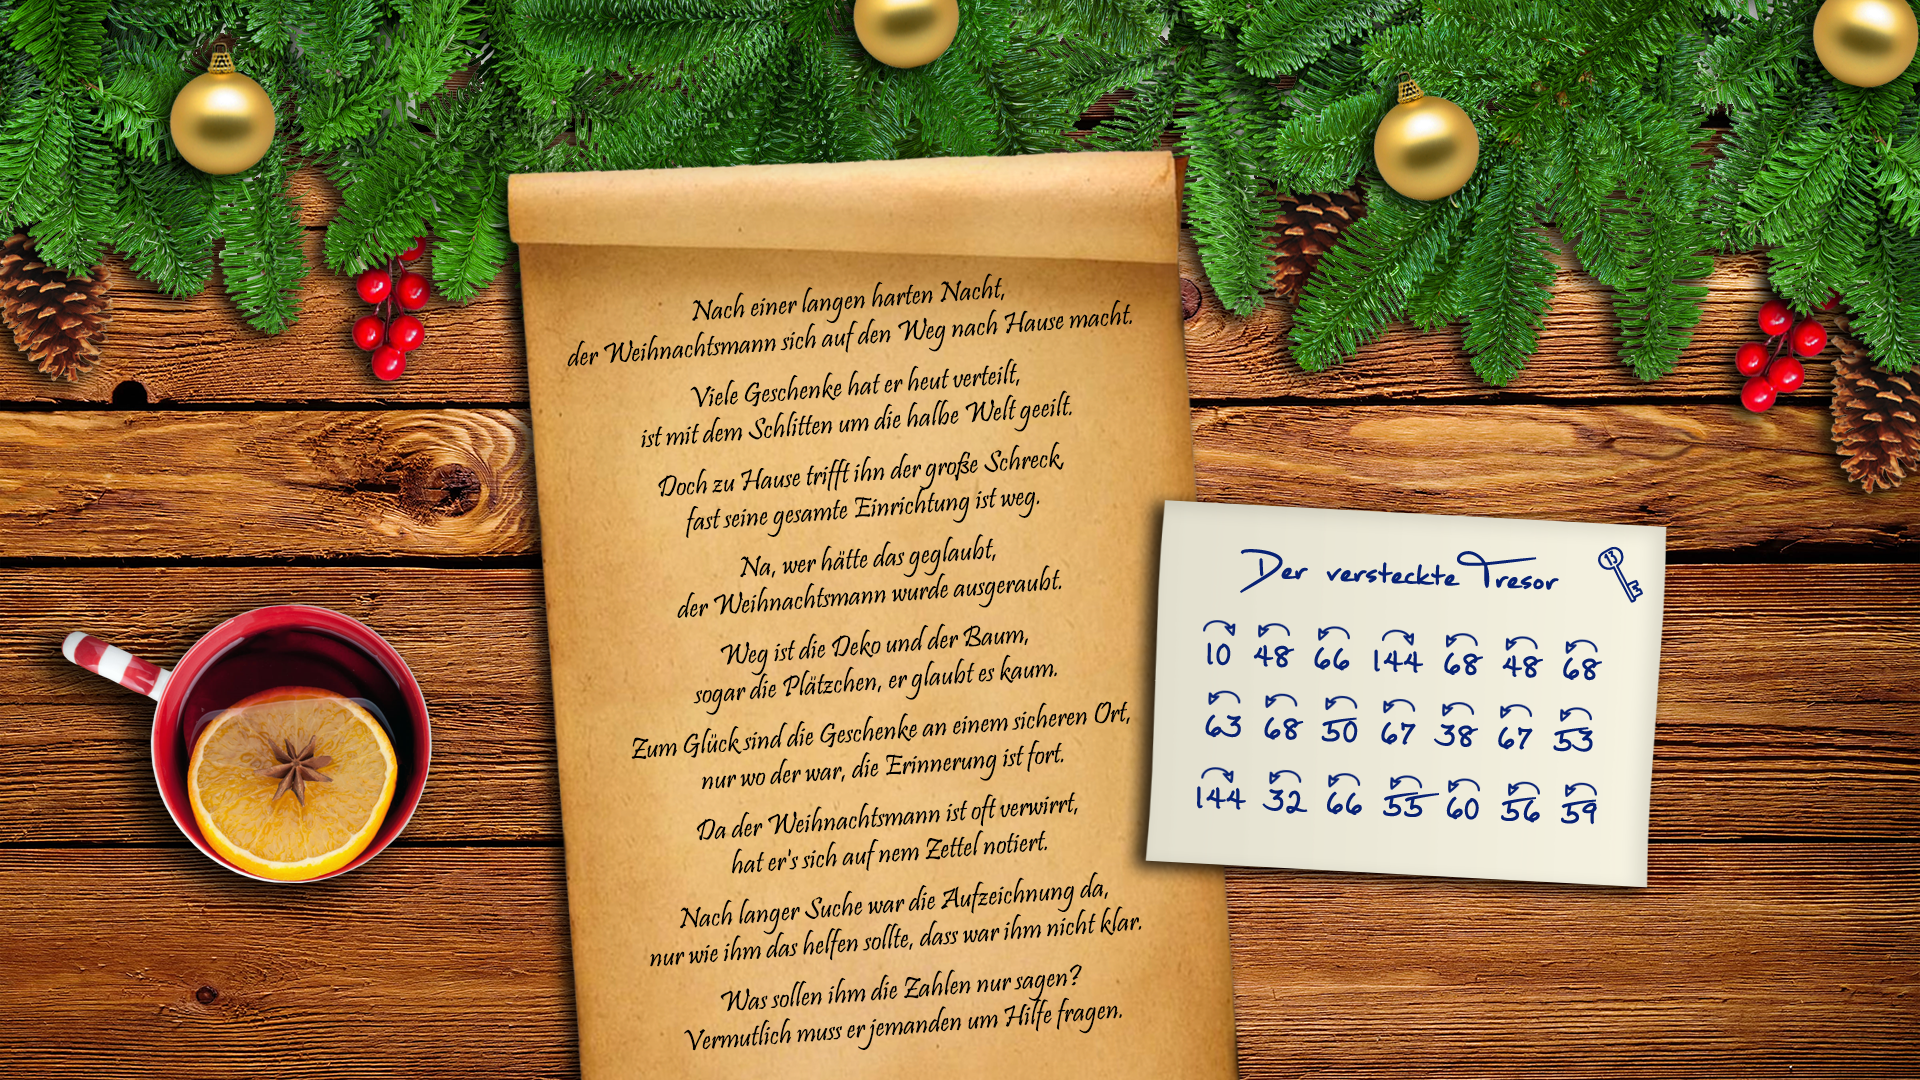 Nach einer langen harten Nacht,
der Weihnachtsmann sich auf den Weg nach Hause macht.
Viele Geschenke hat er heut verteilt,
ist mit dem Schlitten um die halbe Welt geeilt.
Doch zu Hause trifft ihn der große Schreck,
fast seine gesamte Einrichtung ist weg.
Na, wer hätte das geglaubt,
der Weihnachtsmann wurde ausgeraubt.
Weg ist die Deko und der Baum,
sogar die Plätzchen, er glaubt es kaum.
Zum Glück sind die Geschenke an einem sicheren Ort,
nur wo der war, die Erinnerung ist fort.
Da der Weihnachtsmann ist oft verwirrt,
hat er's sich auf nem Zettel notiert.
Nach langer Suche war die Aufzeichnung da,
nur wie ihm das helfen sollte, dass war ihm nicht klar.
Was sollen ihm die Zahlen nur sagen?
Vermutlich muss er jemanden um Hilfe fragen.
Der versteckte Tresor
13
10 48 66 144 68 48 68
63 68 50 67 38 67 53
144 32 66 55 60 56 59